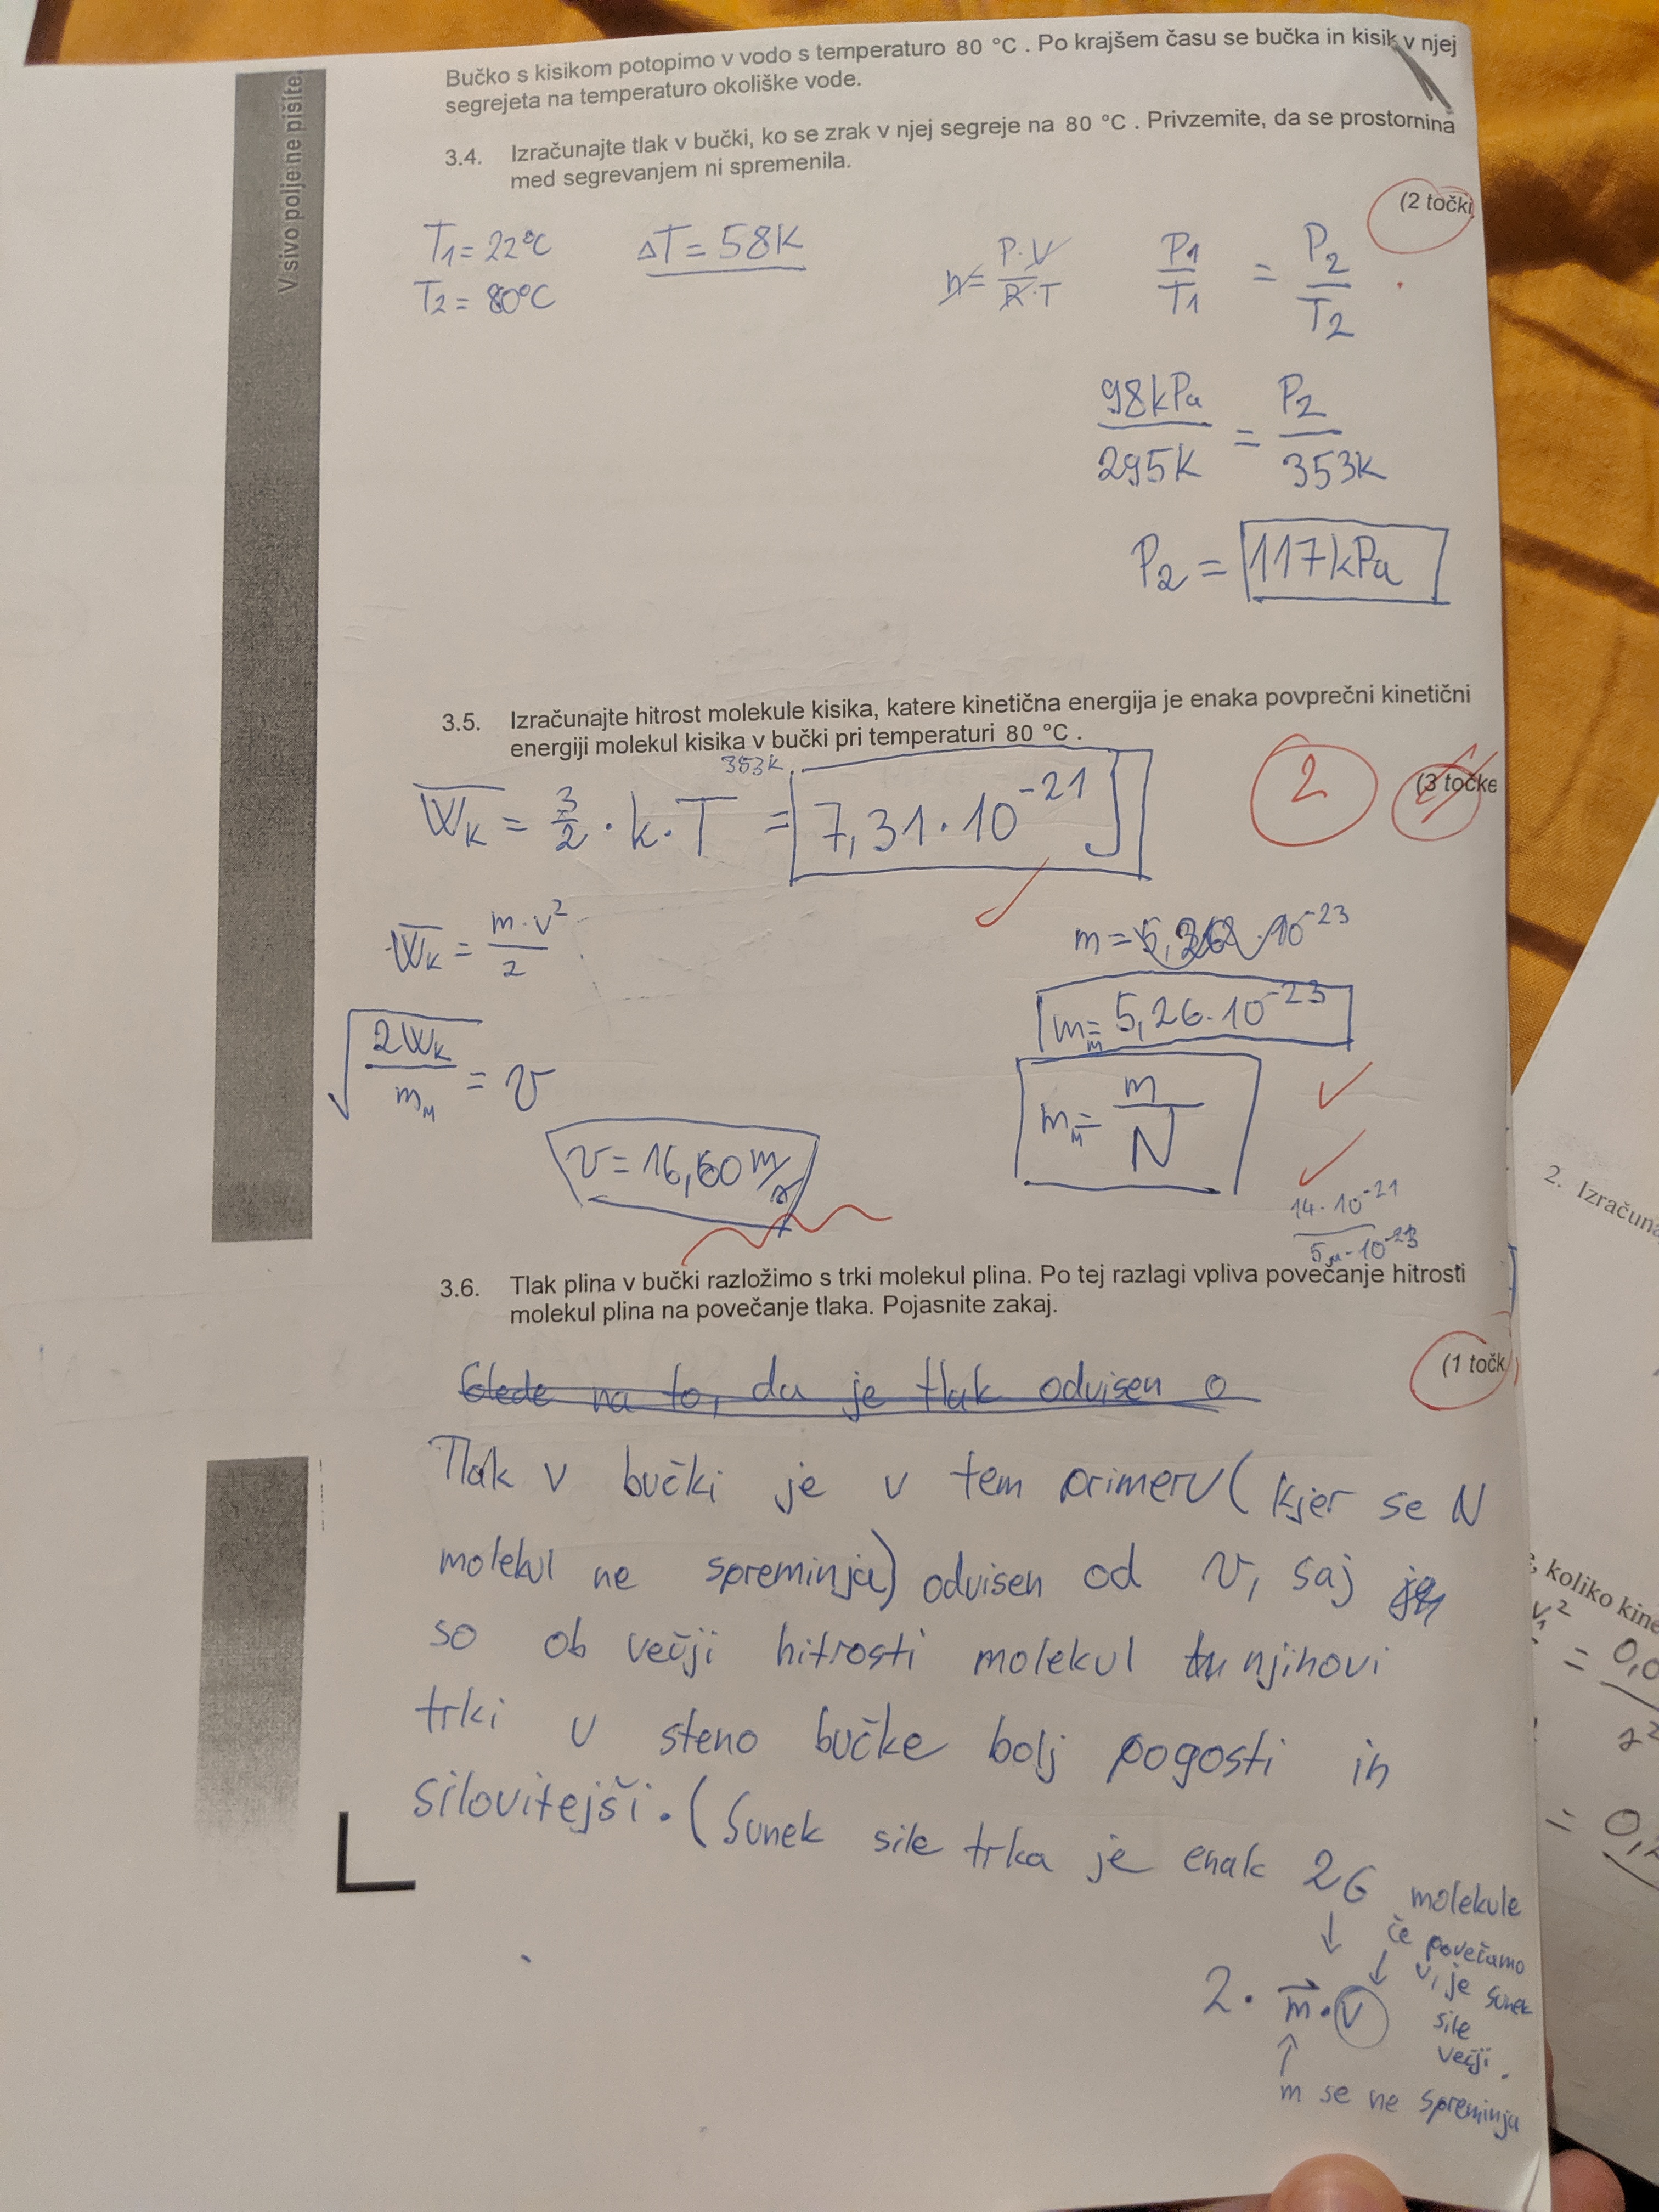 V sivo polje ne pišite.
Bučko s kisikom potopimo v vodo s temperaturo 80 °C . Po krajšem času se bučka in kisik v njej
segrejeta na temperaturo okoliške vode.
3.4. Izračunajte tlak v bučki, ko se zrak v njej segreje na 80 °C . Privzemite, da se prostornina
med segrevanjem ni spremenila.
(2 točki
T1 = 22°C
T2 = 80°C
ΔT = 58K
n = P·V / R·T
P1 / T1 = P2 / T2
98kPa / 295K = P2 / 353K
P2 = 117kPa
3.5. Izračunajte hitrost molekule kisika, katere kinetična energija je enaka povprečni kinetični
energiji molekul kisika v bučki pri temperaturi 80 °C .
2 (3 točke
353K
WK = 3/2 · k · T = 7,31·10⁻²¹ J
WK = m·v² / 2
m = 10⁻²³
mM = 5,26·10⁻²³
√(2WK / mM) = v
mM = m / N
v = 16,60 m/s
14·10⁻²¹
10⁻²³
3.6. Tlak plina v bučki razložimo s trki molekul plina. Po tej razlagi vpliva povečanje hitrosti
molekul plina na povečanje tlaka. Pojasnite zakaj.
(1 točk
Glede na to, da je tlak odvisen o
Tlak v bučki je v tem primeru (kjer se N
molekul ne spreminja) odvisen od v, saj
so ob večji hitrosti molekul njihovi
trki v steno bučke bolj pogosti in
silovitejši. (Sunek sile trka je enak 2G molekule
2 · m · v
če povečamo
v, je sunek
sile
večji.
m se ne spreminja
2. Izračuna
, koliko kine
v1²
= 0,0
= 0,